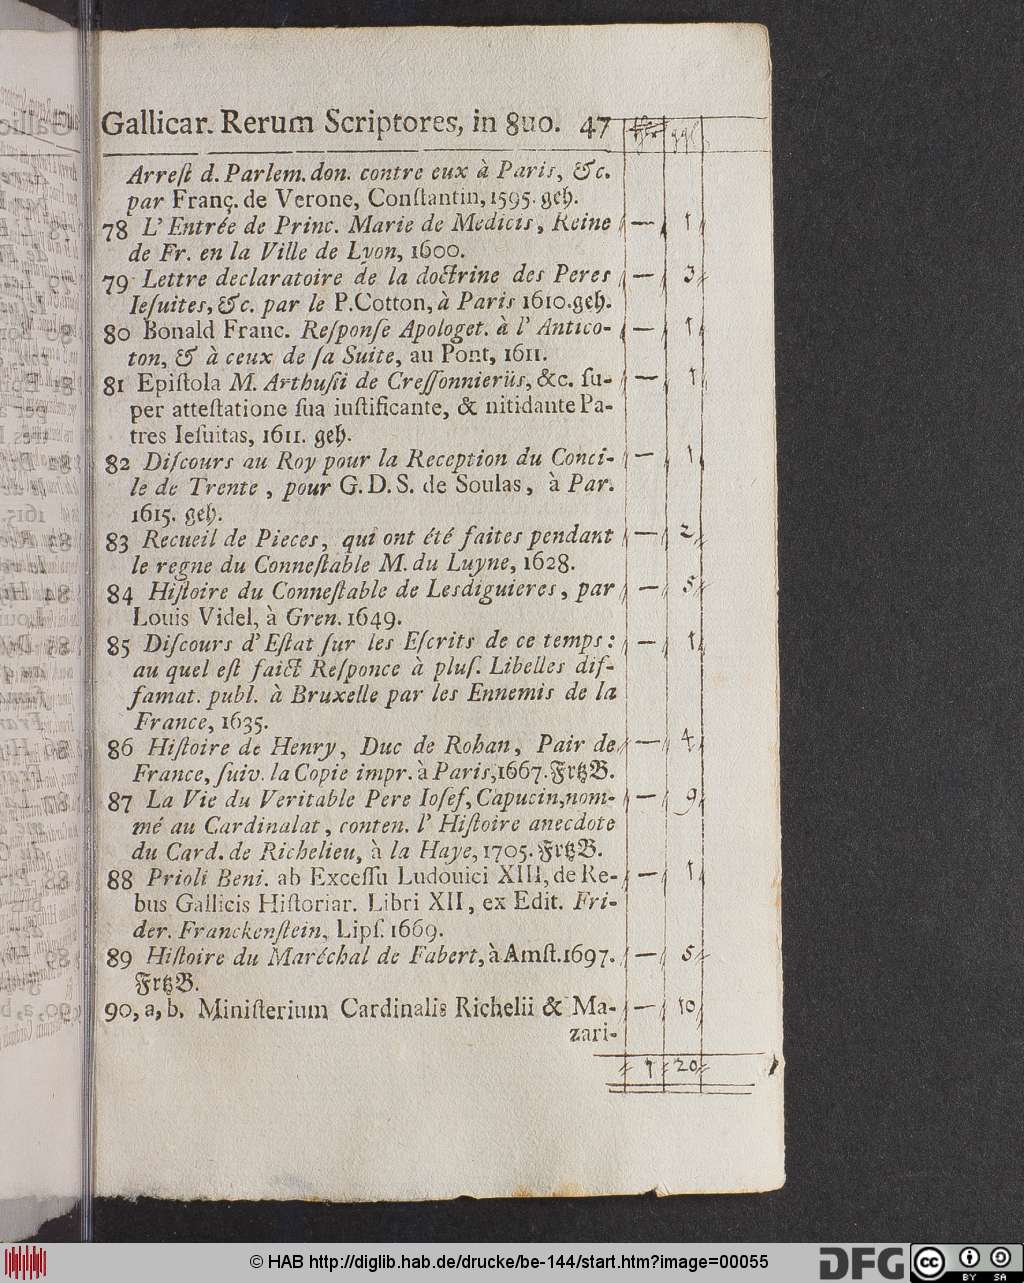 Gallicar. Rerum Scriptores, in 8uo. 47
Arreſt d. Parlem. don. contre eux à Paris, &c.
par Franç. de Verone, Conſtantin, 1595. geh.
78 L'Entrée de Princ. Marie de Medicis, Reine — 1
de Fr. en la Ville de Lyon, 1600.
79 Lettre declaratoire de la doctrine des Peres — 3
Ieſuites, &c. par le P. Cotton, à Paris 1610. geh.
80 Bonald Franc. Reſponſe Apologet. à l'Antico- — 1
ton, & à ceux de ſa Suite, au Pont, 1611.
81 Epiſtola M. Arthuſii de Creſſonnieriis, &c. ſu- — 1
per atteſtatione ſua iuſtificante, & nitidante Pa-
tres Ieſuitas, 1611. geh.
82 Diſcours au Roy pour la Reception du Conci- — 1
le de Trente, pour G. D. S. de Soulas, à Par.
1615. geh.
83 Recueil de Pieces, qui ont été faites pendant — 2
le regne du Conneſtable M. du Luyne, 1628.
84 Hiſtoire du Conneſtable de Lesdiguieres, par — 5
Louis Videl, à Gren. 1649.
85 Diſcours d'Eſtat ſur les Eſcrits de ce temps: — 1
au quel eſt faict Reſponce à pluſ. Libelles dif-
famat. publ. à Bruxelle par les Ennemis de la
France, 1635.
86 Hiſtoire de Henry, Duc de Rohan, Pair de — 4
France, ſuiv. la Copie impr. à Paris, 1667. FrtzB.
87 La Vie du Veritable Pere Ioſef, Capucin, nom- — 9
mé au Cardinalat, conten. l'Hiſtoire anecdote
du Card. de Richelieu, à la Haye, 1705. FrtzB.
88 Prioli Beni. ab Exceſſu Ludouici XIII, de Re- — 1
bus Gallicis Hiſtoriar. Libri XII, ex Edit. Fri-
der. Franckenſtein, Lipſ. 1669.
89 Hiſtoire du Maréchal de Fabert, à Amſt. 1697. — 5
FrtzB.
90, a, b. Miniſterium Cardinalis Richelii & Ma- — 10
zari-
1 20
© HAB http://diglib.hab.de/drucke/be-144/start.htm?image=00055
DFG
cc BY SA